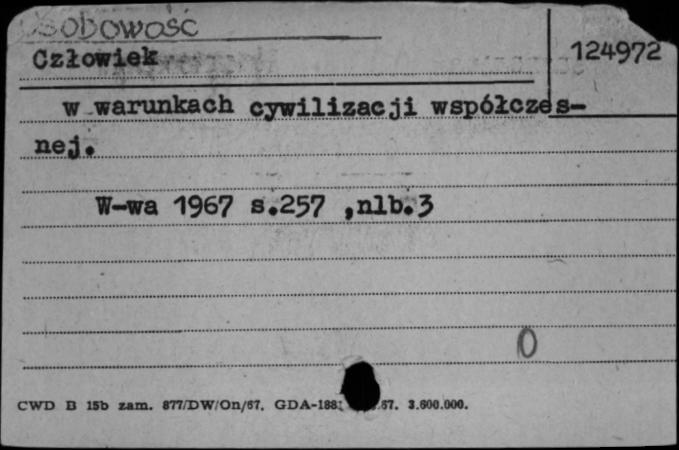 Osobowość
Człowiek
124972
w warunkach cywilizacji współczes-
nej.
W-wa 1967 s.257 ,nlb.3
0
CWD B 15b zam. 877/DW/On/67. GDA-188 67. 3.600.000.